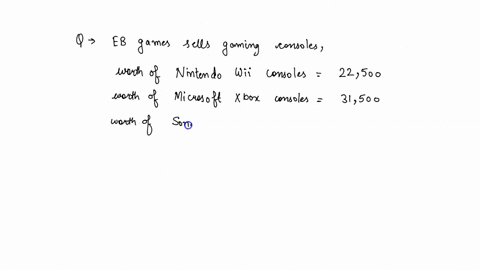 Q → EB games sells gaming consoles,
worth of Nintendo Wii consoles = 22,500
worth of Microsoft Xbox consoles = 31,500
worth of Son